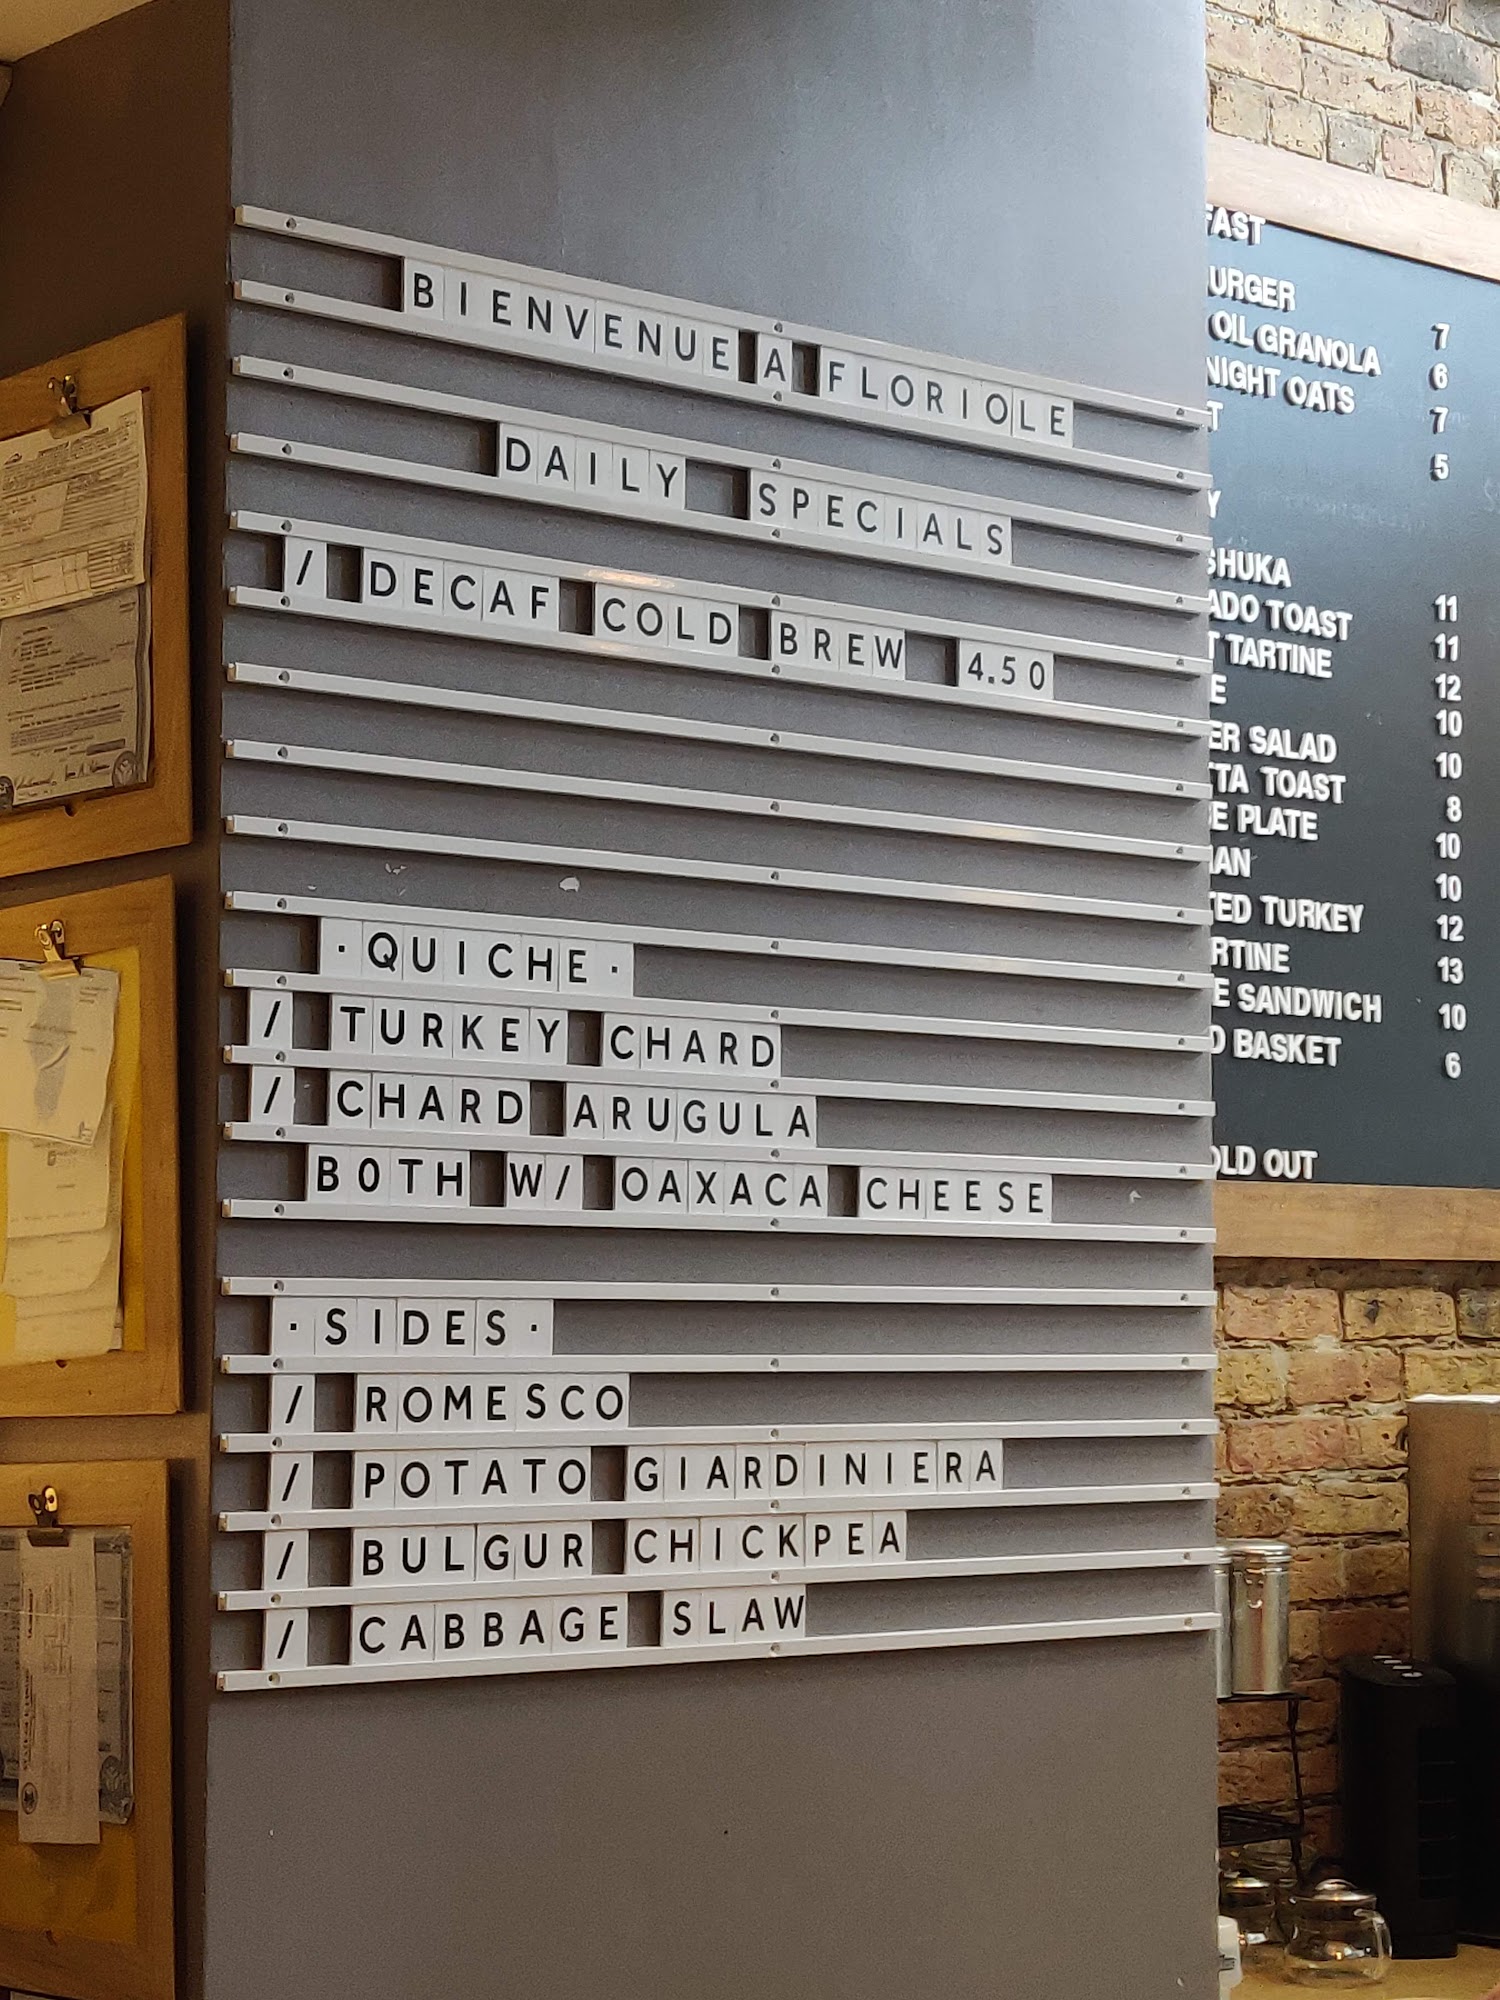 BIENVENUE A FLORIOLE
DAILY SPECIALS
/ DECAF COLD BREW 4.50
· QUICHE ·
/ TURKEY CHARD
/ CHARD ARUGULA
BOTH W/ OAXACA CHEESE
· SIDES ·
/ ROMESCO
/ POTATO GIARDINIERA
/ BULGUR CHICKPEA
/ CABBAGE SLAW
FAST
URGER 7
OIL GRANOLA 6
NIGHT OATS 7
T 5
Y
SHUKA 11
ADO TOAST 11
T TARTINE 12
E 10
ER SALAD 10
TTA TOAST 8
E PLATE 10
AN 10
TED TURKEY 12
RTINE 13
E SANDWICH 10
D BASKET 6
OLD OUT